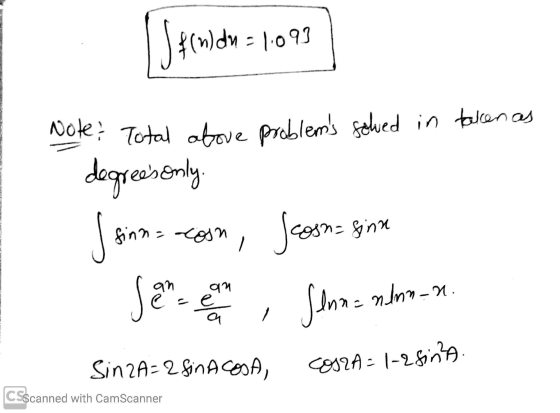 ∫f(x)dx = 1.093
Note: Total above problem's solved in taken as
degree's only.
∫sinx = -cosx, ∫cosx = sinx
∫e^ax = e^ax/a, ∫lnx = xlnx - x.
Sin2A = 2 sinA cosA, cos2A = 1-2 sin²A.
CS Scanned with CamScanner